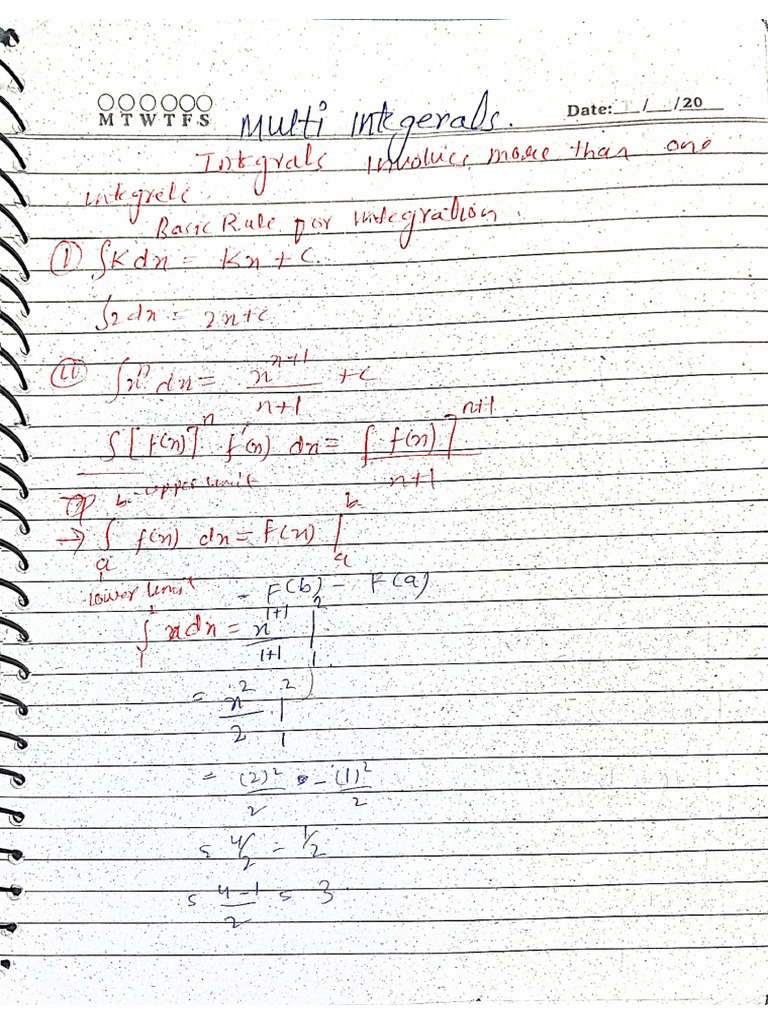 M T W T F S Multi Intgerals. Date: __/__/20__
Intgrals involves more than one
integrels.
Basic Rule for integration.
(I) ∫K dx = Kx + C
∫2 dx = 2x+c
(II) ∫xⁿ dx = x^(n+1)/(n+1) + c
∫[f(x)]ⁿ f'(x) dx = [f(x)]^(n+1)/(n+1)
b-upper limit
→ ∫ₐ f(x) dx = F(x) |ₐᵇ
lower limit = F(b) - F(a)
∫₁² x dx = x^(1+1)/(1+1) |₁²
= x²/2 |₁²
= (2)²/2 - (1)²/2
= 4/2 - 1/2
= (4-1)/2 = 3